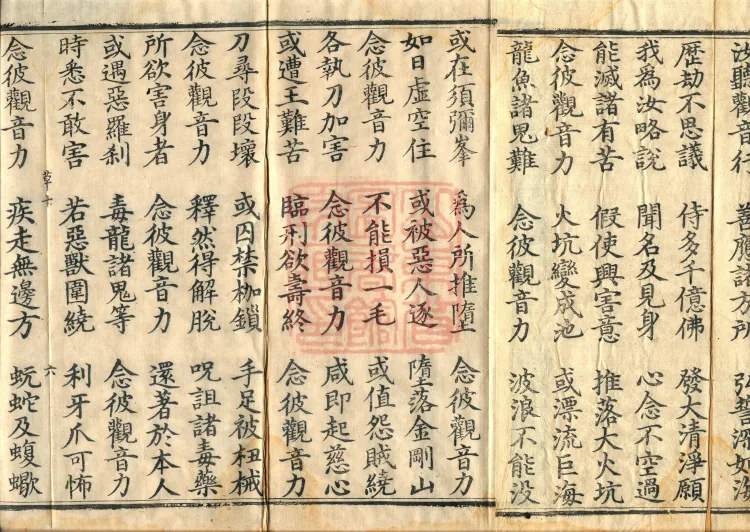 汝聽觀音行 善應諸方所 弘誓深如海
歷劫不思議 侍多千億佛 發大清淨願
我為汝略說 聞名及見身 心念不空過
能滅諸有苦 假使興害意 推落大火坑
念彼觀音力 火坑變成池 或漂流巨海
龍魚諸鬼難 念彼觀音力 波浪不能没
或在須彌峯 為人所推墮 念彼觀音力
如日虛空住 或被惡人逐 墮落金剛山
念彼觀音力 不能損一毛 或值怨賊繞
各執刀加害 念彼觀音力 咸即起慈心
或遭王難苦 臨刑欲壽終 念彼觀音力
刀尋段段壞 或囚禁枷鎖 手足被杻械
念彼觀音力 釋然得解脫 呪詛諸毒藥
所欲害身者 念彼觀音力 還著於本人
或遇惡羅刹 毒龍諸鬼等 念彼觀音力
時悉不敢害 若惡獸圍繞 利牙爪可怖
六
念彼觀音力 疾走無邊方 蚖蛇及蝮蠍